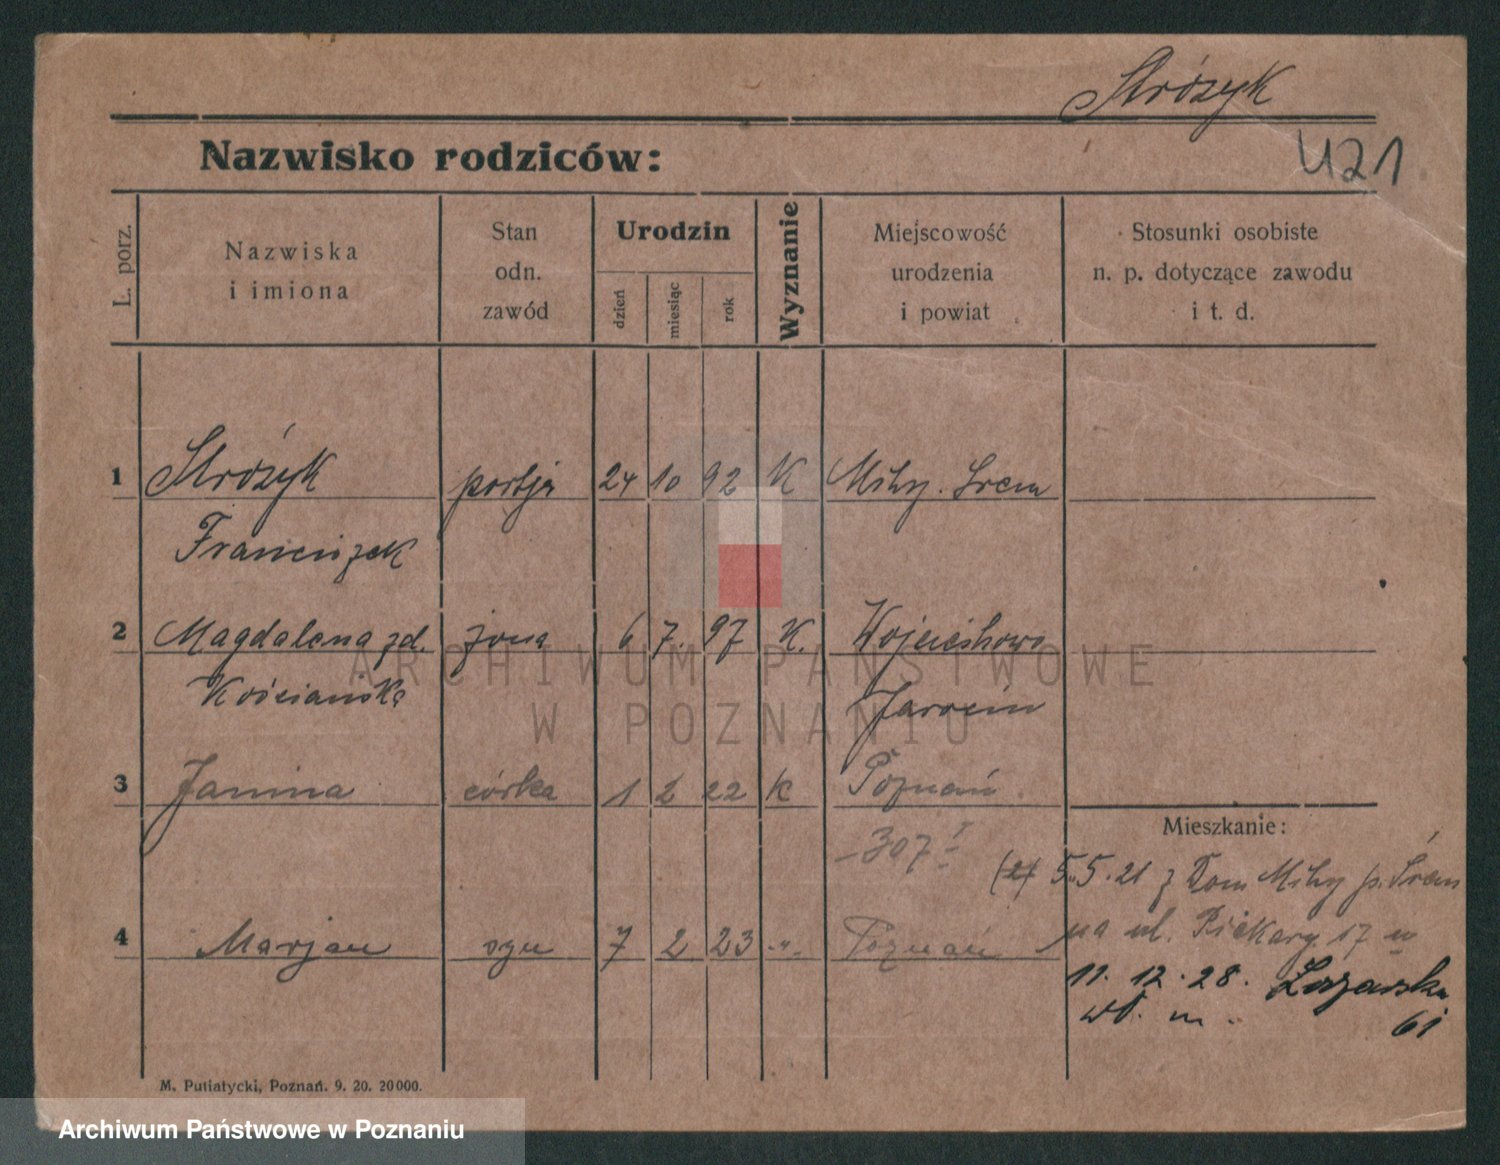 Stróżyk
421
Nazwisko rodziców:
L. porz.
Nazwiska
i imiona
Stan
odn.
zawód
Urodzin
dzień
miesiąc
rok
Wyznanie
Miejscowość
urodzenia
i powiat
Stosunki osobiste
n. p. dotyczące zawodu
i t. d.
1 Stróżyk portja 24 10 92 K Mchy. Śrem
Franciszek
2 Magdalena zd. żona 6 7. 97 K. Wojciechowo
Kościańska Jarocin
3 Janina córka 1 2 22 K Poznań
Mieszkanie:
-307 I
(2) 5.5.21 z Dom Mchy p. Śrem
4 Marjan syn 7 2 23 -"- Poznań
na ul. Piekary 17 w
11.12.28. Łazarska
wł. m. 61
M. Putiatycki, Poznań. 9. 20. 20000.
ARCHIWUM PAŃSTWOWE
W POZNANIU
Archiwum Państwowe w Poznaniu